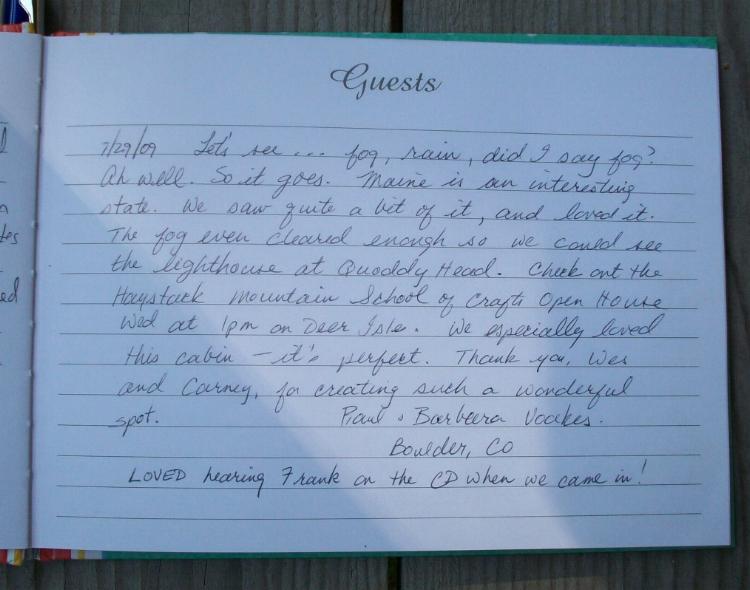 Guests
7/29/09 Let's see ... fog, rain, did I say fog?
Ah well. So it goes. Maine is an interesting
state. We saw quite a bit of it, and loved it.
The fog even cleared enough so we could see
the lighthouse at Quoddy Head. Check out the
Haystack Mountain School of Crafts Open House
Wed at 1pm on Deer Isle. We especially loved
this cabin - it's perfect. Thank you, Wes
and Carney, for creating such a wonderful
spot. Paul & Barbara Voakes.
Boulder, CO
LOVED hearing Frank on the CD when we came in!
tes
ed